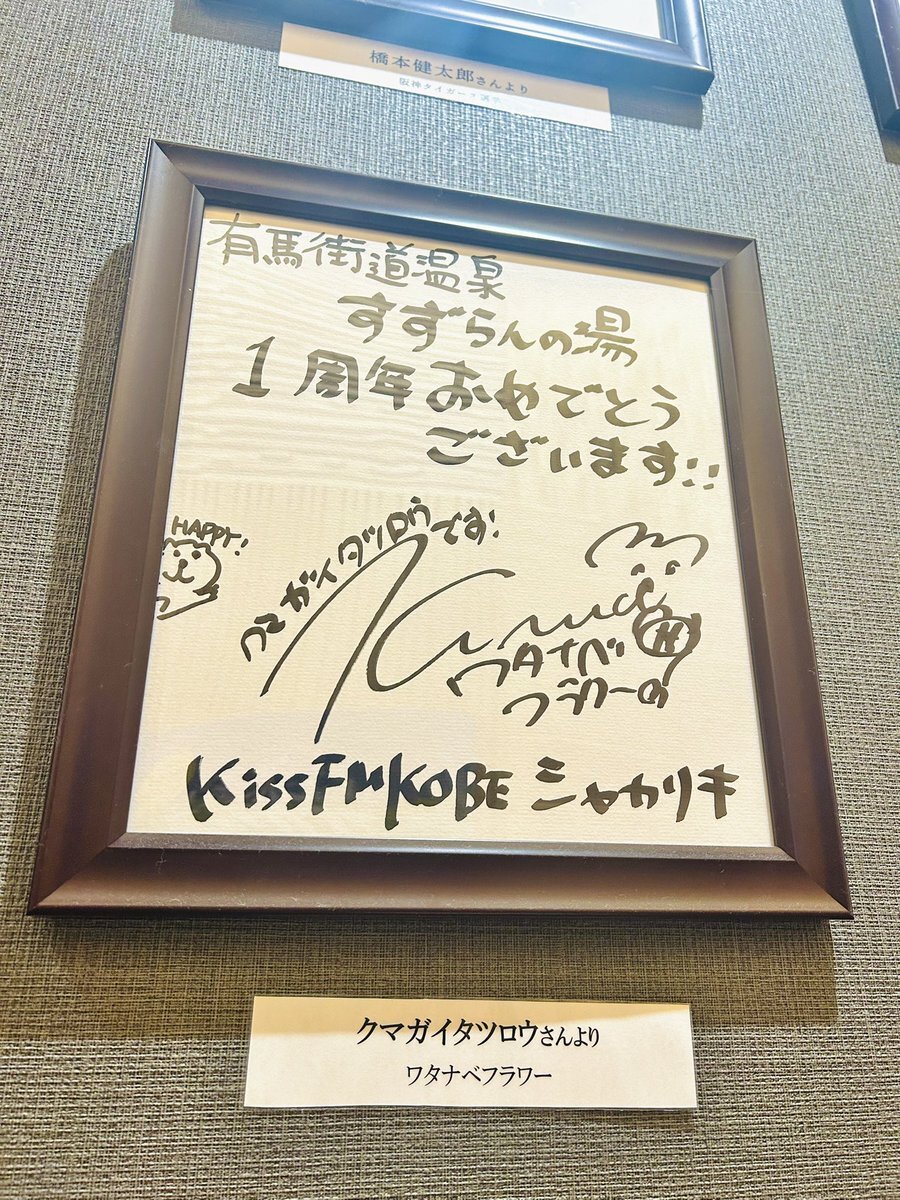 橋本健太郎さんより
阪神タイガース選手
有馬街道温泉
すずらんの湯
1周年おめでとう
ございます!!
HAPPY!
クマガイタツロウです!
ワタナベ
フラワーの
KissFMKOBE シャカリキ
クマガイタツロウさんより
ワタナベフラワー